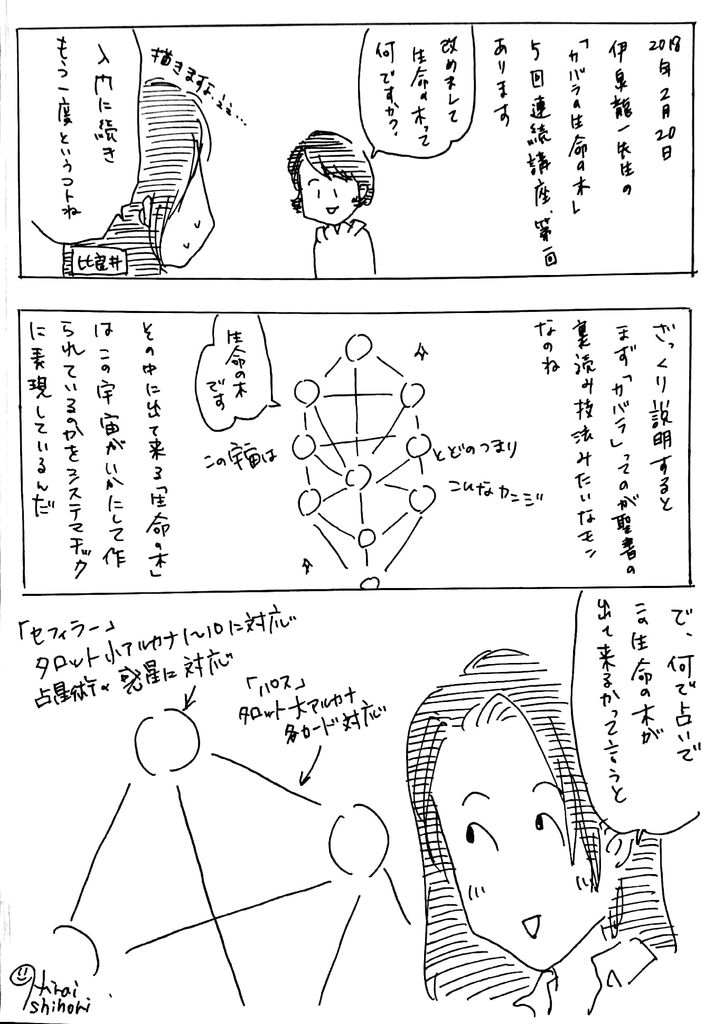 2018年2月20日
伊泉龍一先生の
「カバラの生命の木」
5回連続講座、第一回
あります
改めまして
生命の木って
何ですか?
描きますな、しえ…
入門に続き
もう一度というコトね
ざっくり説明すると
まず「カバラ」ってのが聖書の
裏読み技法みたいなモン
なのね
生命の木
です
この宇宙は
とどのつまり
こんなカンジ
その中に出て来る「生命の木」
はこの宇宙がいかにして作
られているのかをシステマチック
に表現しているんだ
で、何で占いで
この生命の木が
出て来るかって言うと
「セフィラー」
タロット小アルカナ1〜10に対応
占星術の惑星に対応
「パス」
タロット大アルカナ
各カード対応
Hirai
shihori